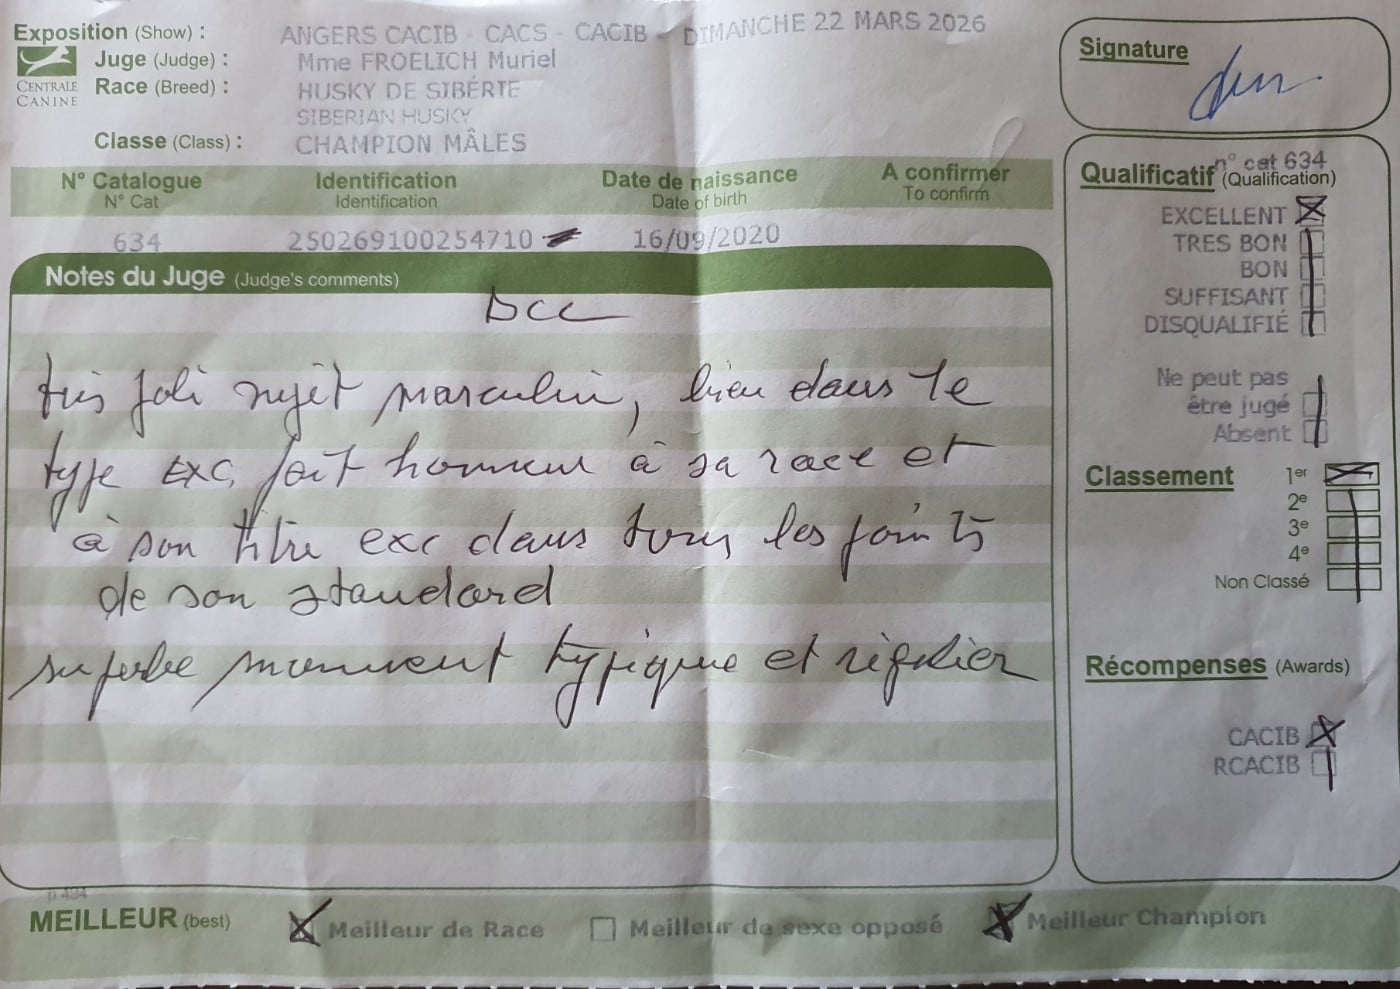 Exposition (Show) : ANGERS CACIB - CACS - CACIB - DIMANCHE 22 MARS 2026
Juge (Judge) : Mme FROELICH Muriel
CENTRALE CANINE
Race (Breed) : HUSKY DE SIBÉRIE
SIBERIAN HUSKY
Classe (Class) : CHAMPION MÂLES
N° Catalogue Identification Date de naissance A confirmer
N° Cat Identification Date of birth To confirm
634 250269100254710 16/09/2020
Notes du Juge (Judge's comments)
très joli sujet masculin, bien dans le
type exc, fait honneur à sa race et
à son titre exc dans tous les points
de son standard
superbe mouvement typique et régulier
Signature
n° cat 634
Qualificatif (Qualification)
EXCELLENT
TRES BON
BON
SUFFISANT
DISQUALIFIÉ
Ne peut pas
être jugé
Absent
Classement 1er
2e
3e
4e
Non Classé
Récompenses (Awards)
CACIB
RCACIB
p 434
MEILLEUR (best) Meilleur de Race Meilleur de sexe opposé Meilleur Champion